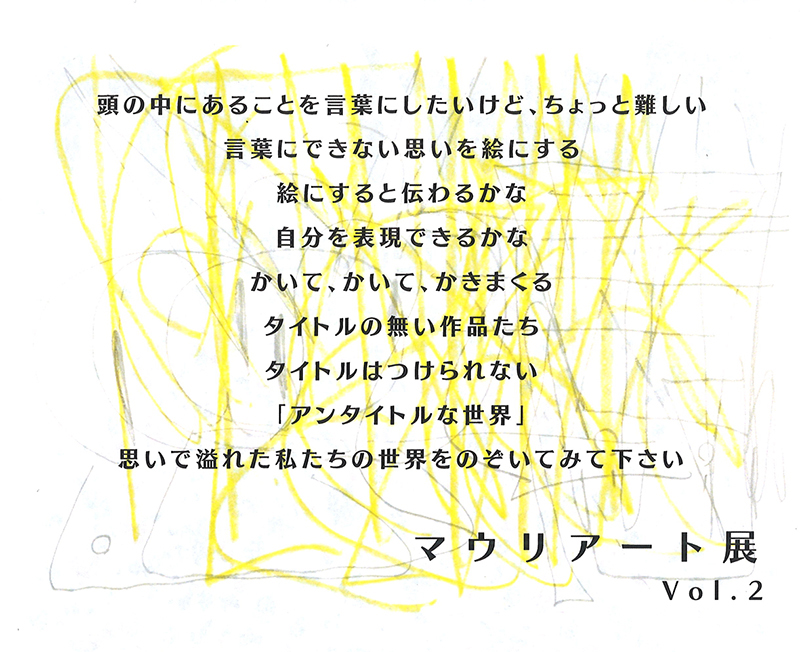 頭の中にあることを言葉にしたいけど、ちょっと難しい
言葉にできない思いを絵にする
絵にすると伝わるかな
自分を表現できるかな
かいて、かいて、かきまくる
タイトルの無い作品たち
タイトルはつけられない
「アンタイトルな世界」
思いで溢れた私たちの世界をのぞいてみて下さい
マウリアート展
Vol.2